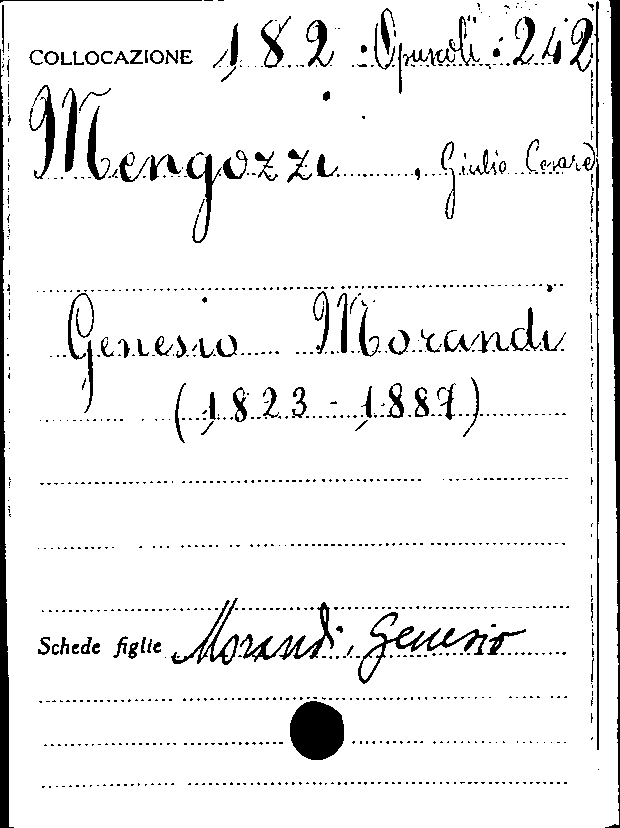 COLLOCAZIONE 182 · Opuscoli · 242
Mengozzi, Giulio Cesare
Genesio Morandi
(1823 - 1887)
Schede figlie Morandi, Genesio